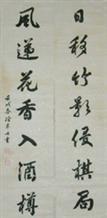 日移竹影侵棋局
風遞花香入酒樽